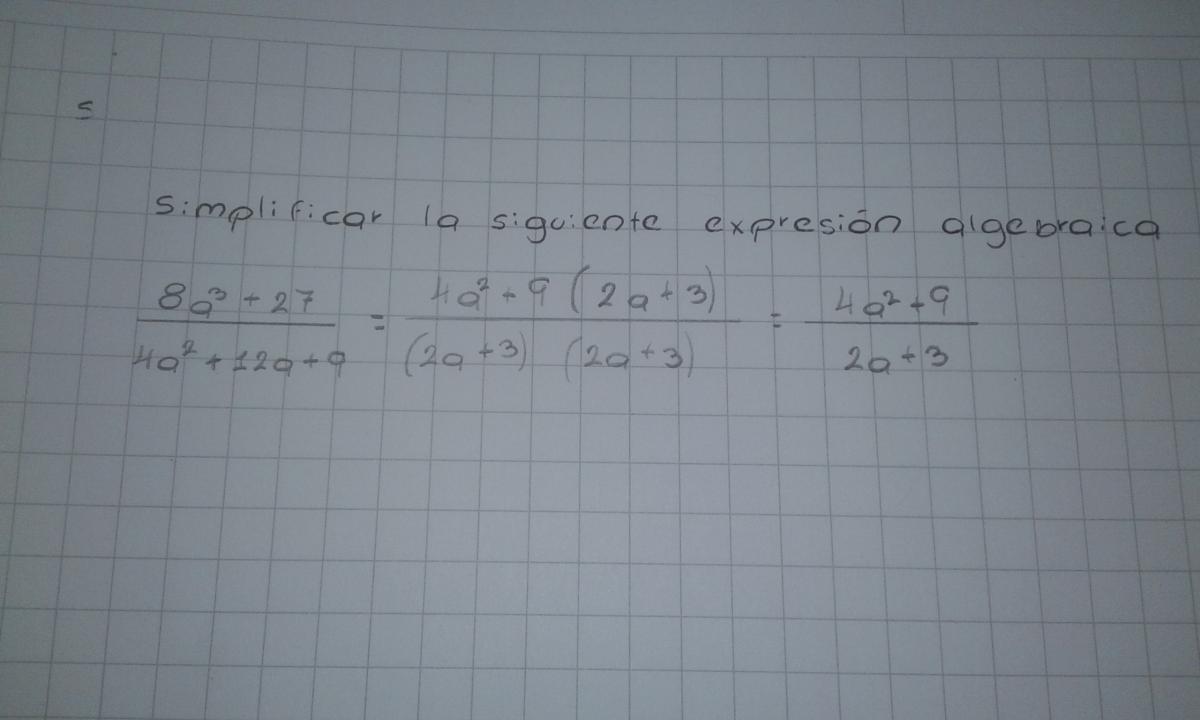 s
simplificar la siguiente expresión algebraica
8a³ + 27 / 4a² + 12a + 9 = 4a² + 9 (2a + 3) / (2a + 3) (2a + 3) = 4a² + 9 / 2a + 3